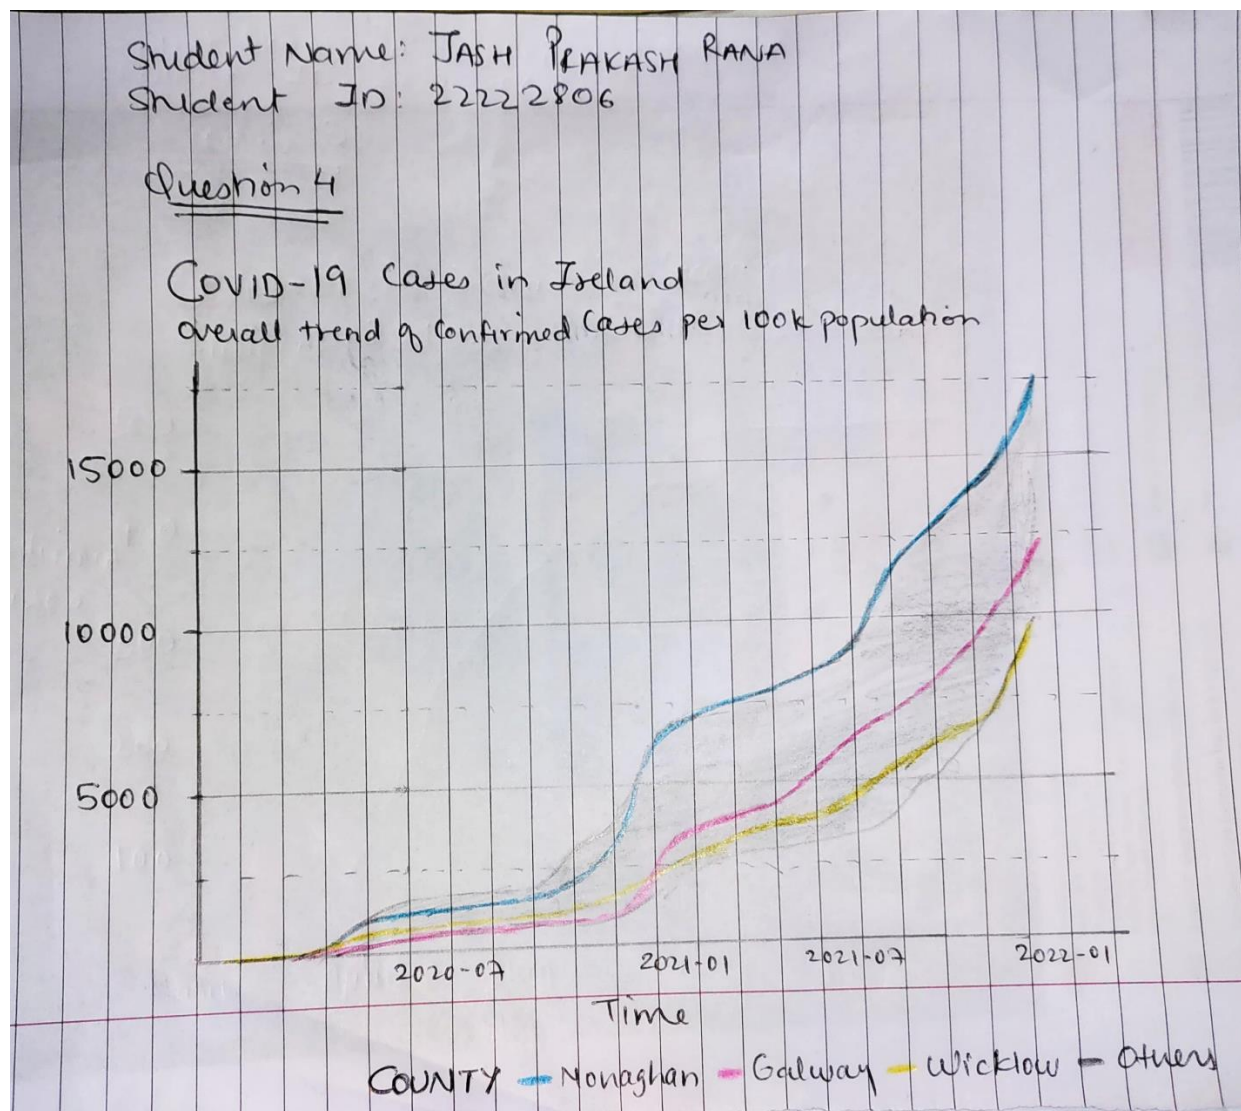 Student Name: JASH PRAKASH RANA
Student ID: 22222806
Question 4
COVID-19 Cases in Ireland
overall trend of Confirmed Cases per 100k population
15000
10000
5000
2020-07 2021-01 2021-07 2022-01
Time
COUNTY Monaghan Galway Wicklow Others